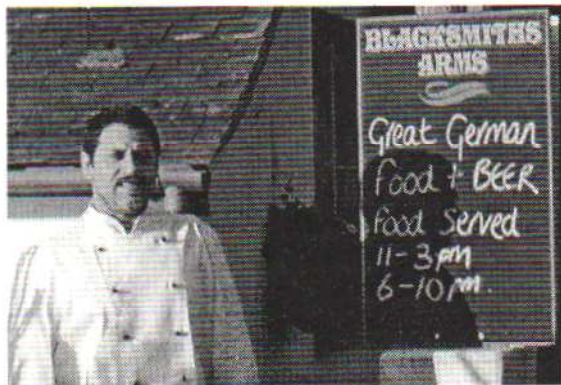 BLACKSMITHS
ARMS
Great German
Food + BEER
Food Served
11-3pm
6-10pm.